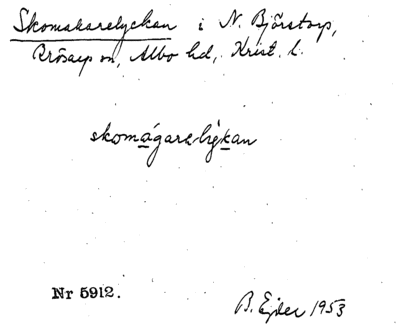 Skomakarelyckan i N. Björstorp,
Brösarp sn, Albo hd, Krist. l.
skomågarelykkan
Nr 5912.
B. Ejder 1953